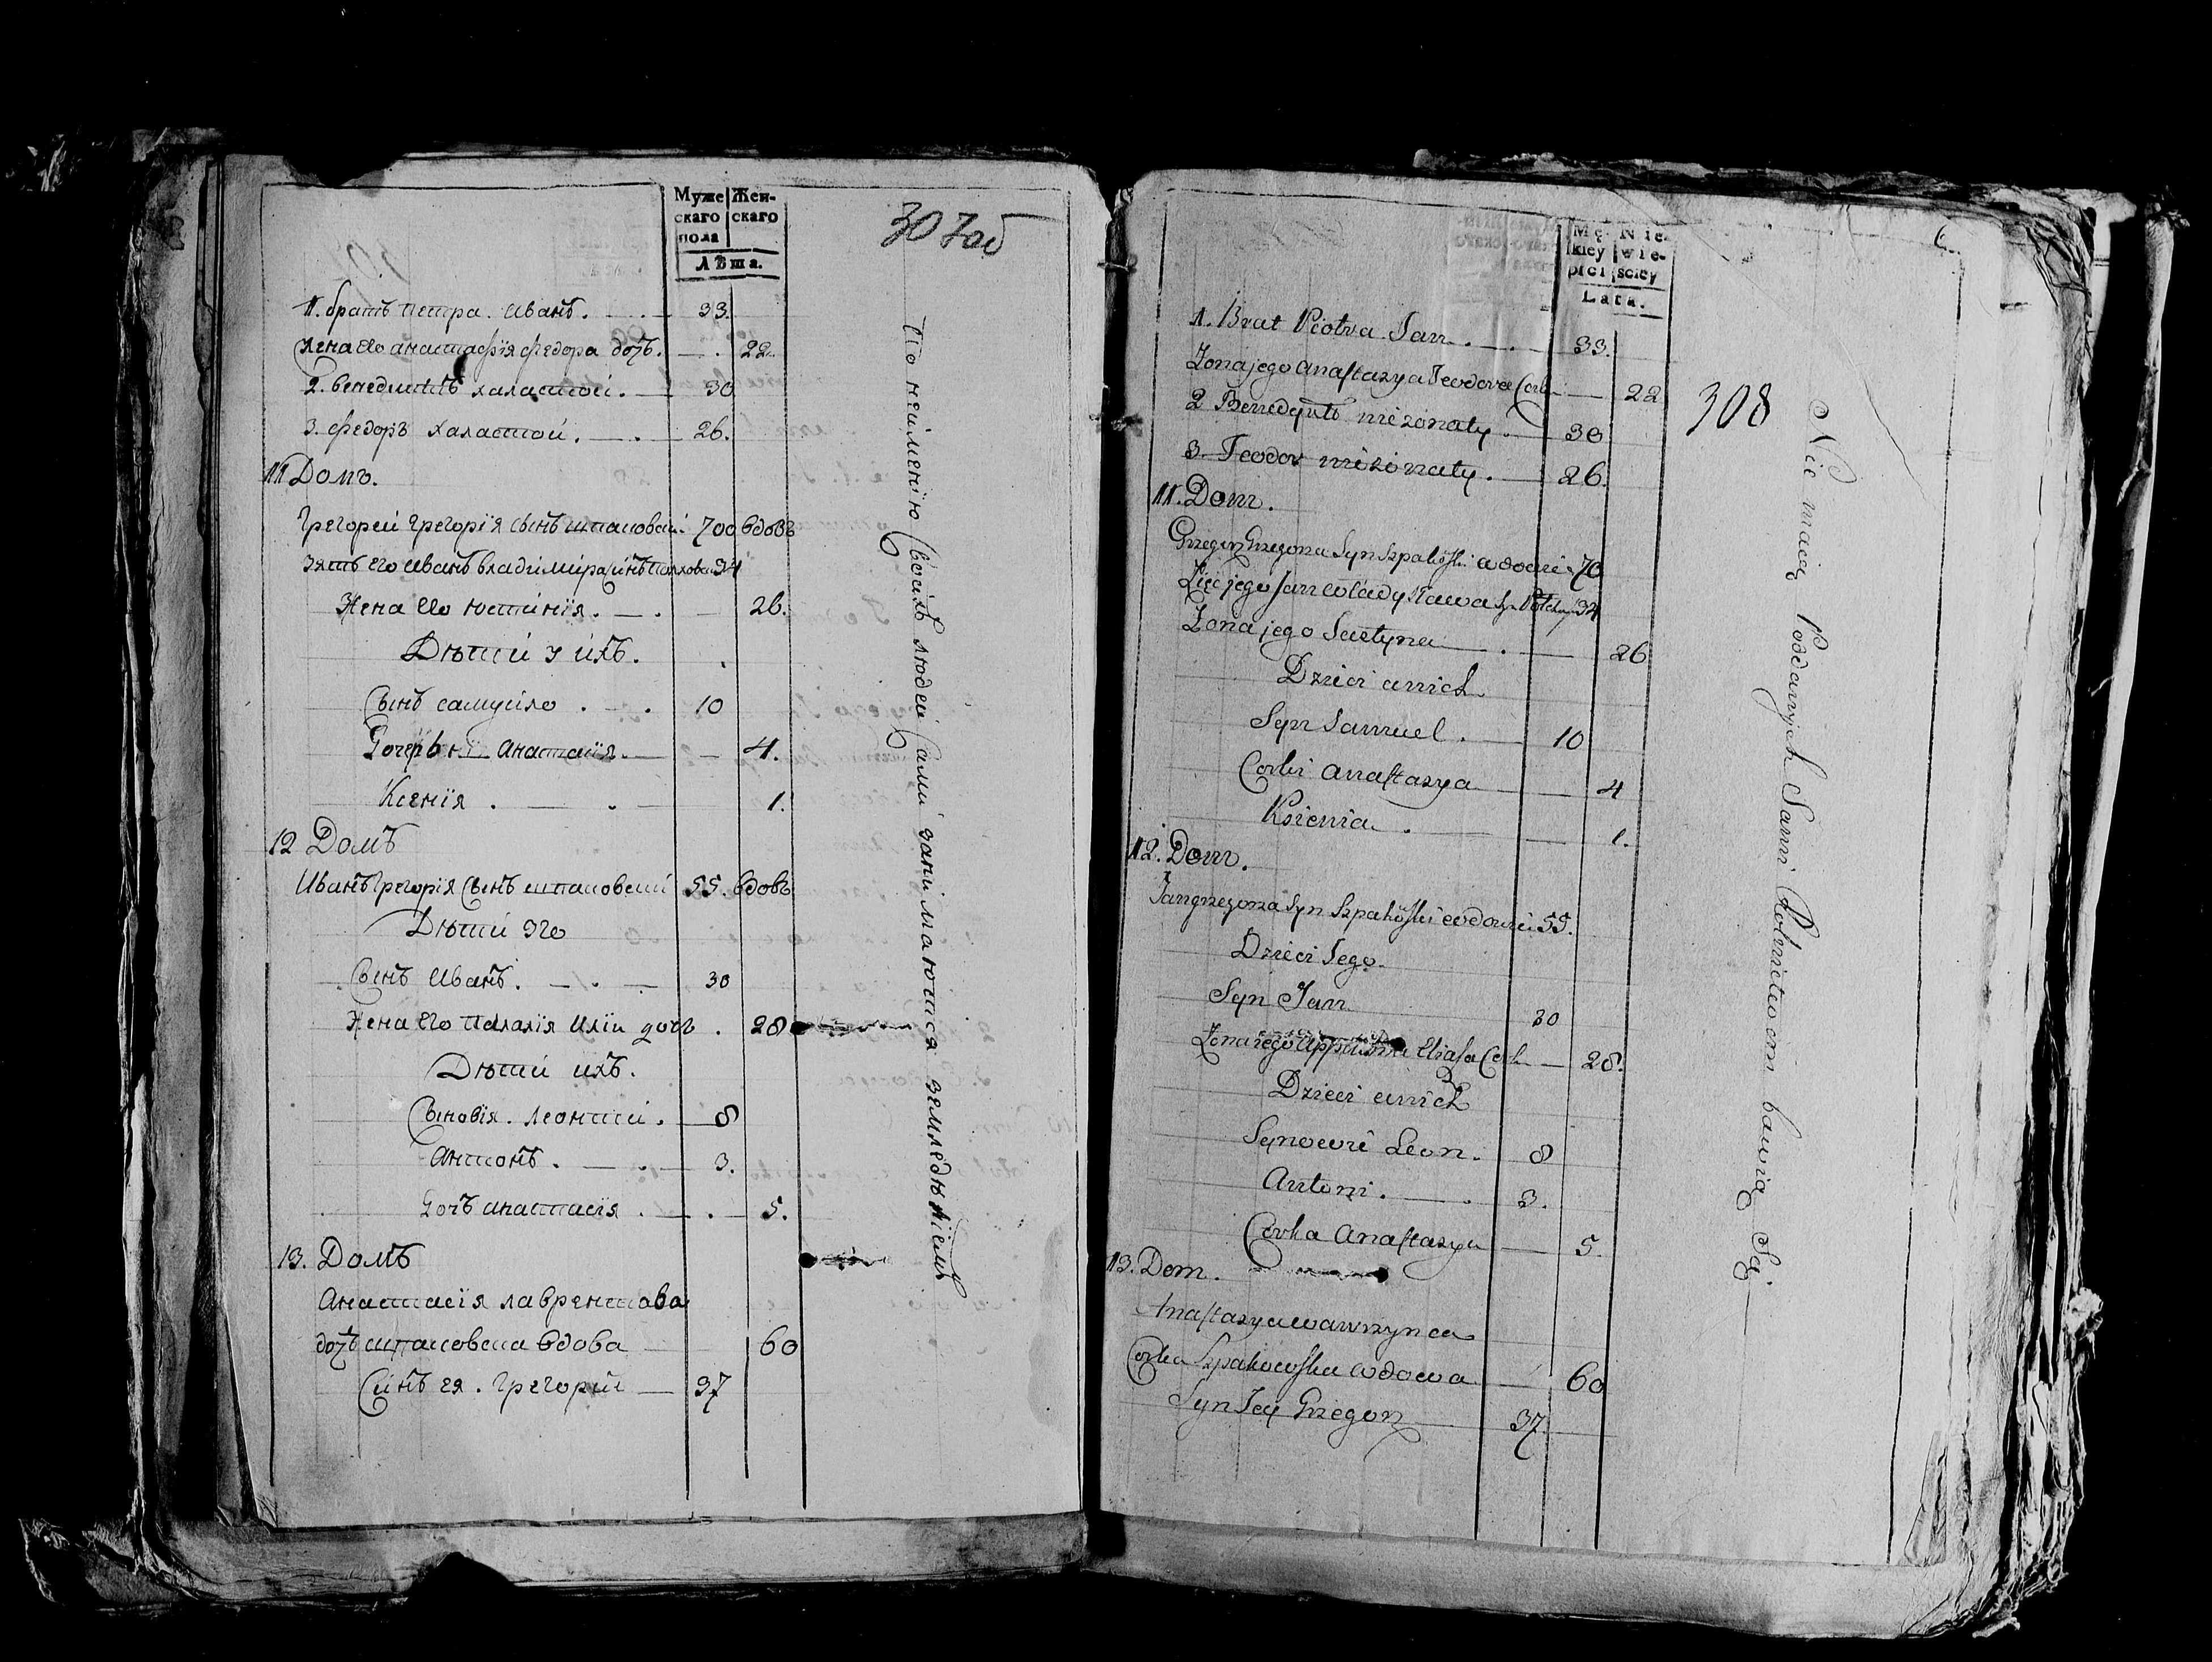 Муже Жен-
скаго скаго
пола
Лѣта.
307 об
11. братъ петра. иванъ. 33.
жена его анастасїя федора дочъ. 22.
2. бенедиктъ халастой. 30
3. федоръ халастой. 26.
11 Домъ.
Грегорей грегорїя сынъ шпаковскій. 70 вдовъ
зять его иванъ владимира сынъ 34
Жена его юстинїя. 26.
Дѣти у ихъ.
Сынъ самуйло. 10
Дочери анастасїя. 4.
Ксенїя. 1.
12 Домъ
Иванъ грегорїя сынъ шпаковскій 55. вдовъ
Дѣти его
Сынъ иванъ. 30
Жена его палагїя илїи дочъ. 28
Дѣти ихъ.
Сыновїя. леонтий. 8
антонъ. 3.
Дочъ анастасїя. 5.
13. Домъ
Анастасїя лаврентова
дочъ шпаковска вдова 60
Сынъ ея. грегорий 37
По неимению своихъ людей сами занимаются земледѣлиемъ
Mę- Nie-
kiey wie-
płci sciey
Lata.
6
308
1. Brat Piotra Jan. 33.
Zona jego Anastazya Teodora Corka 22
2 Benedykt nieżonaty. 30
3. Teodor nieżonaty. 26.
11. Dom.
Grzegorz Grzegorza Syn Szpakowski wdowiec 70
Zięć jego Jan Władysława Syn 34
Zona jego Justyna 26
Dzieci u nich
Syn Samuel. 10
Corki Anastazya 4
Ksienia. 1.
12. Dom.
Jan Grzegorza Syn Szpakowski wdowiec 55.
Dzieci Jego.
Syn Jan 30
Zona jego Eliasza Corka 28.
Dzieci u nich
Synowie Leon. 8
Antoni. 3.
Corka Anastazya 5.
13. Dom.
Anastazya Wawrzynca
Corka Szpakowska wdowa 60
Syn Jey Grzegorz 37
Nie maiąc Poddanych Sami Rolnictwem bawią Się